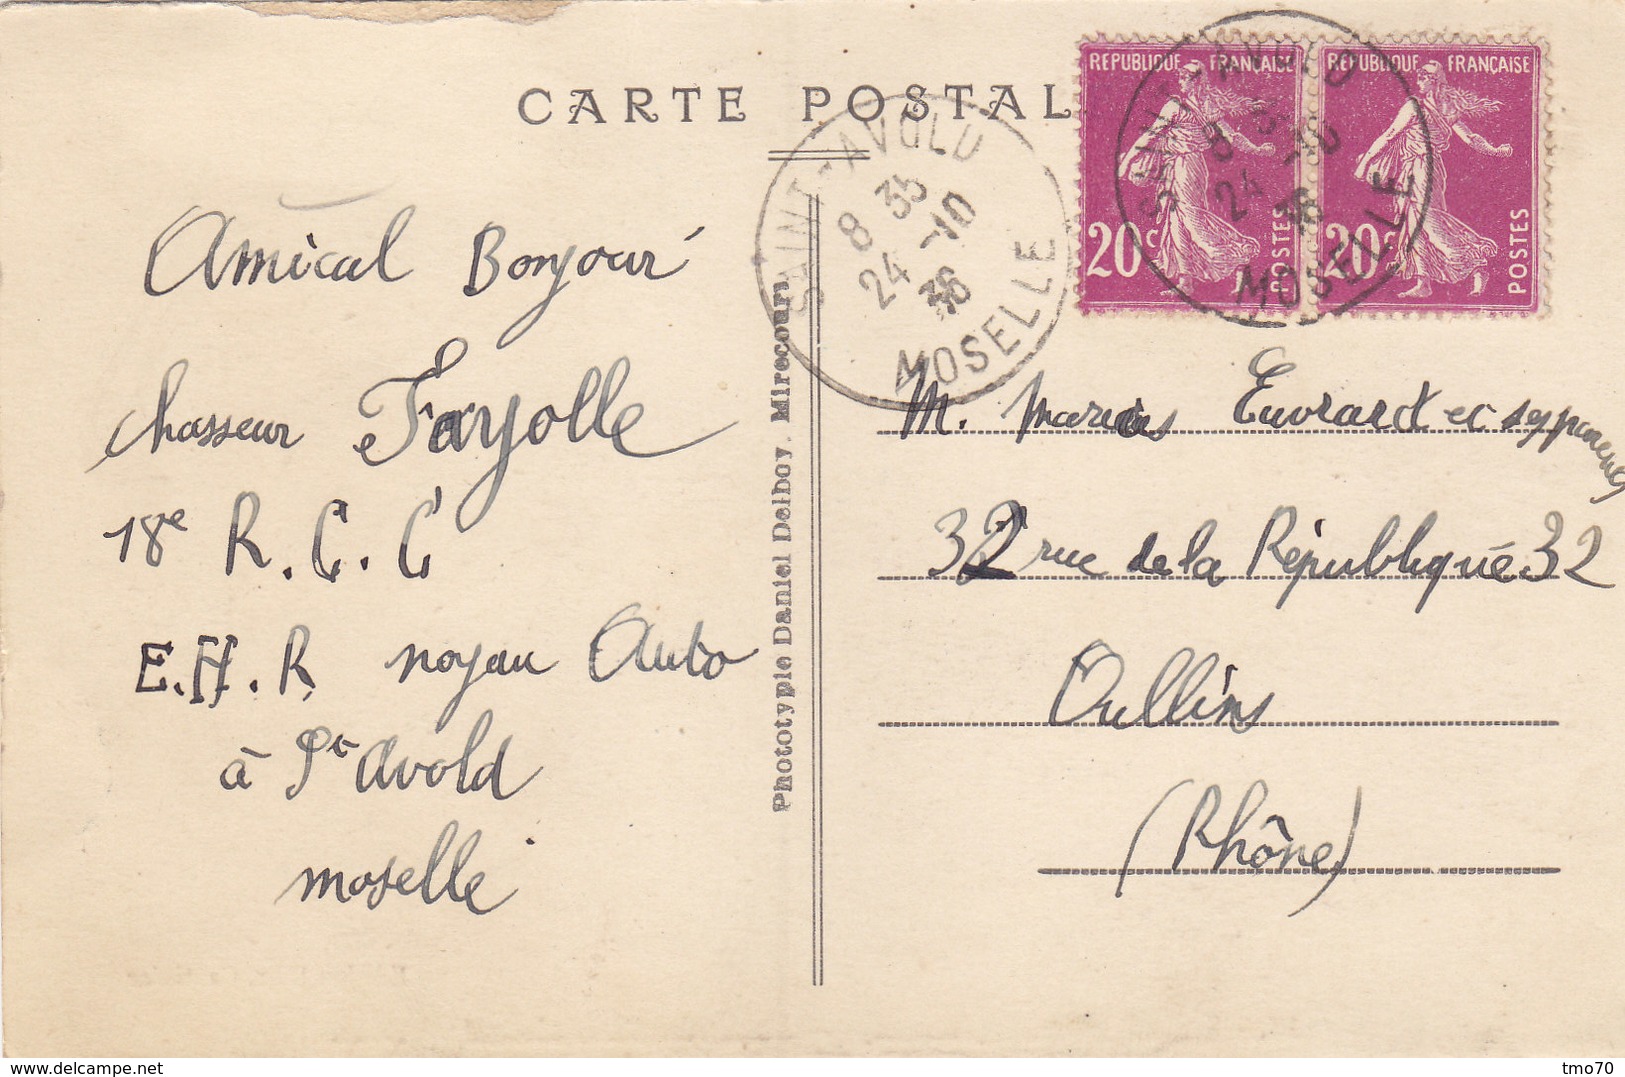 CARTE POSTAL
REPUBLIQUE FRANÇAISE
20c
POSTES
REPUBLIQUE FRANÇAISE
20c
POSTES
SAINT-AVOLD
8 35
24 -10
36
MOSELLE
SAINT-AVOLD
8 35
24 -10
36
MOSELLE
Amical Bonjour
chasseur Fayolle
18e R.C.C
E.H.R noyau Auto
à St Avold
moselle
Phototypie Daniel Delboy. Mirecourt
M. Marius Euvrard et ses parents
32 rue de la République 32
Oullins
(Rhône)
www.delcampe.net
tmo70